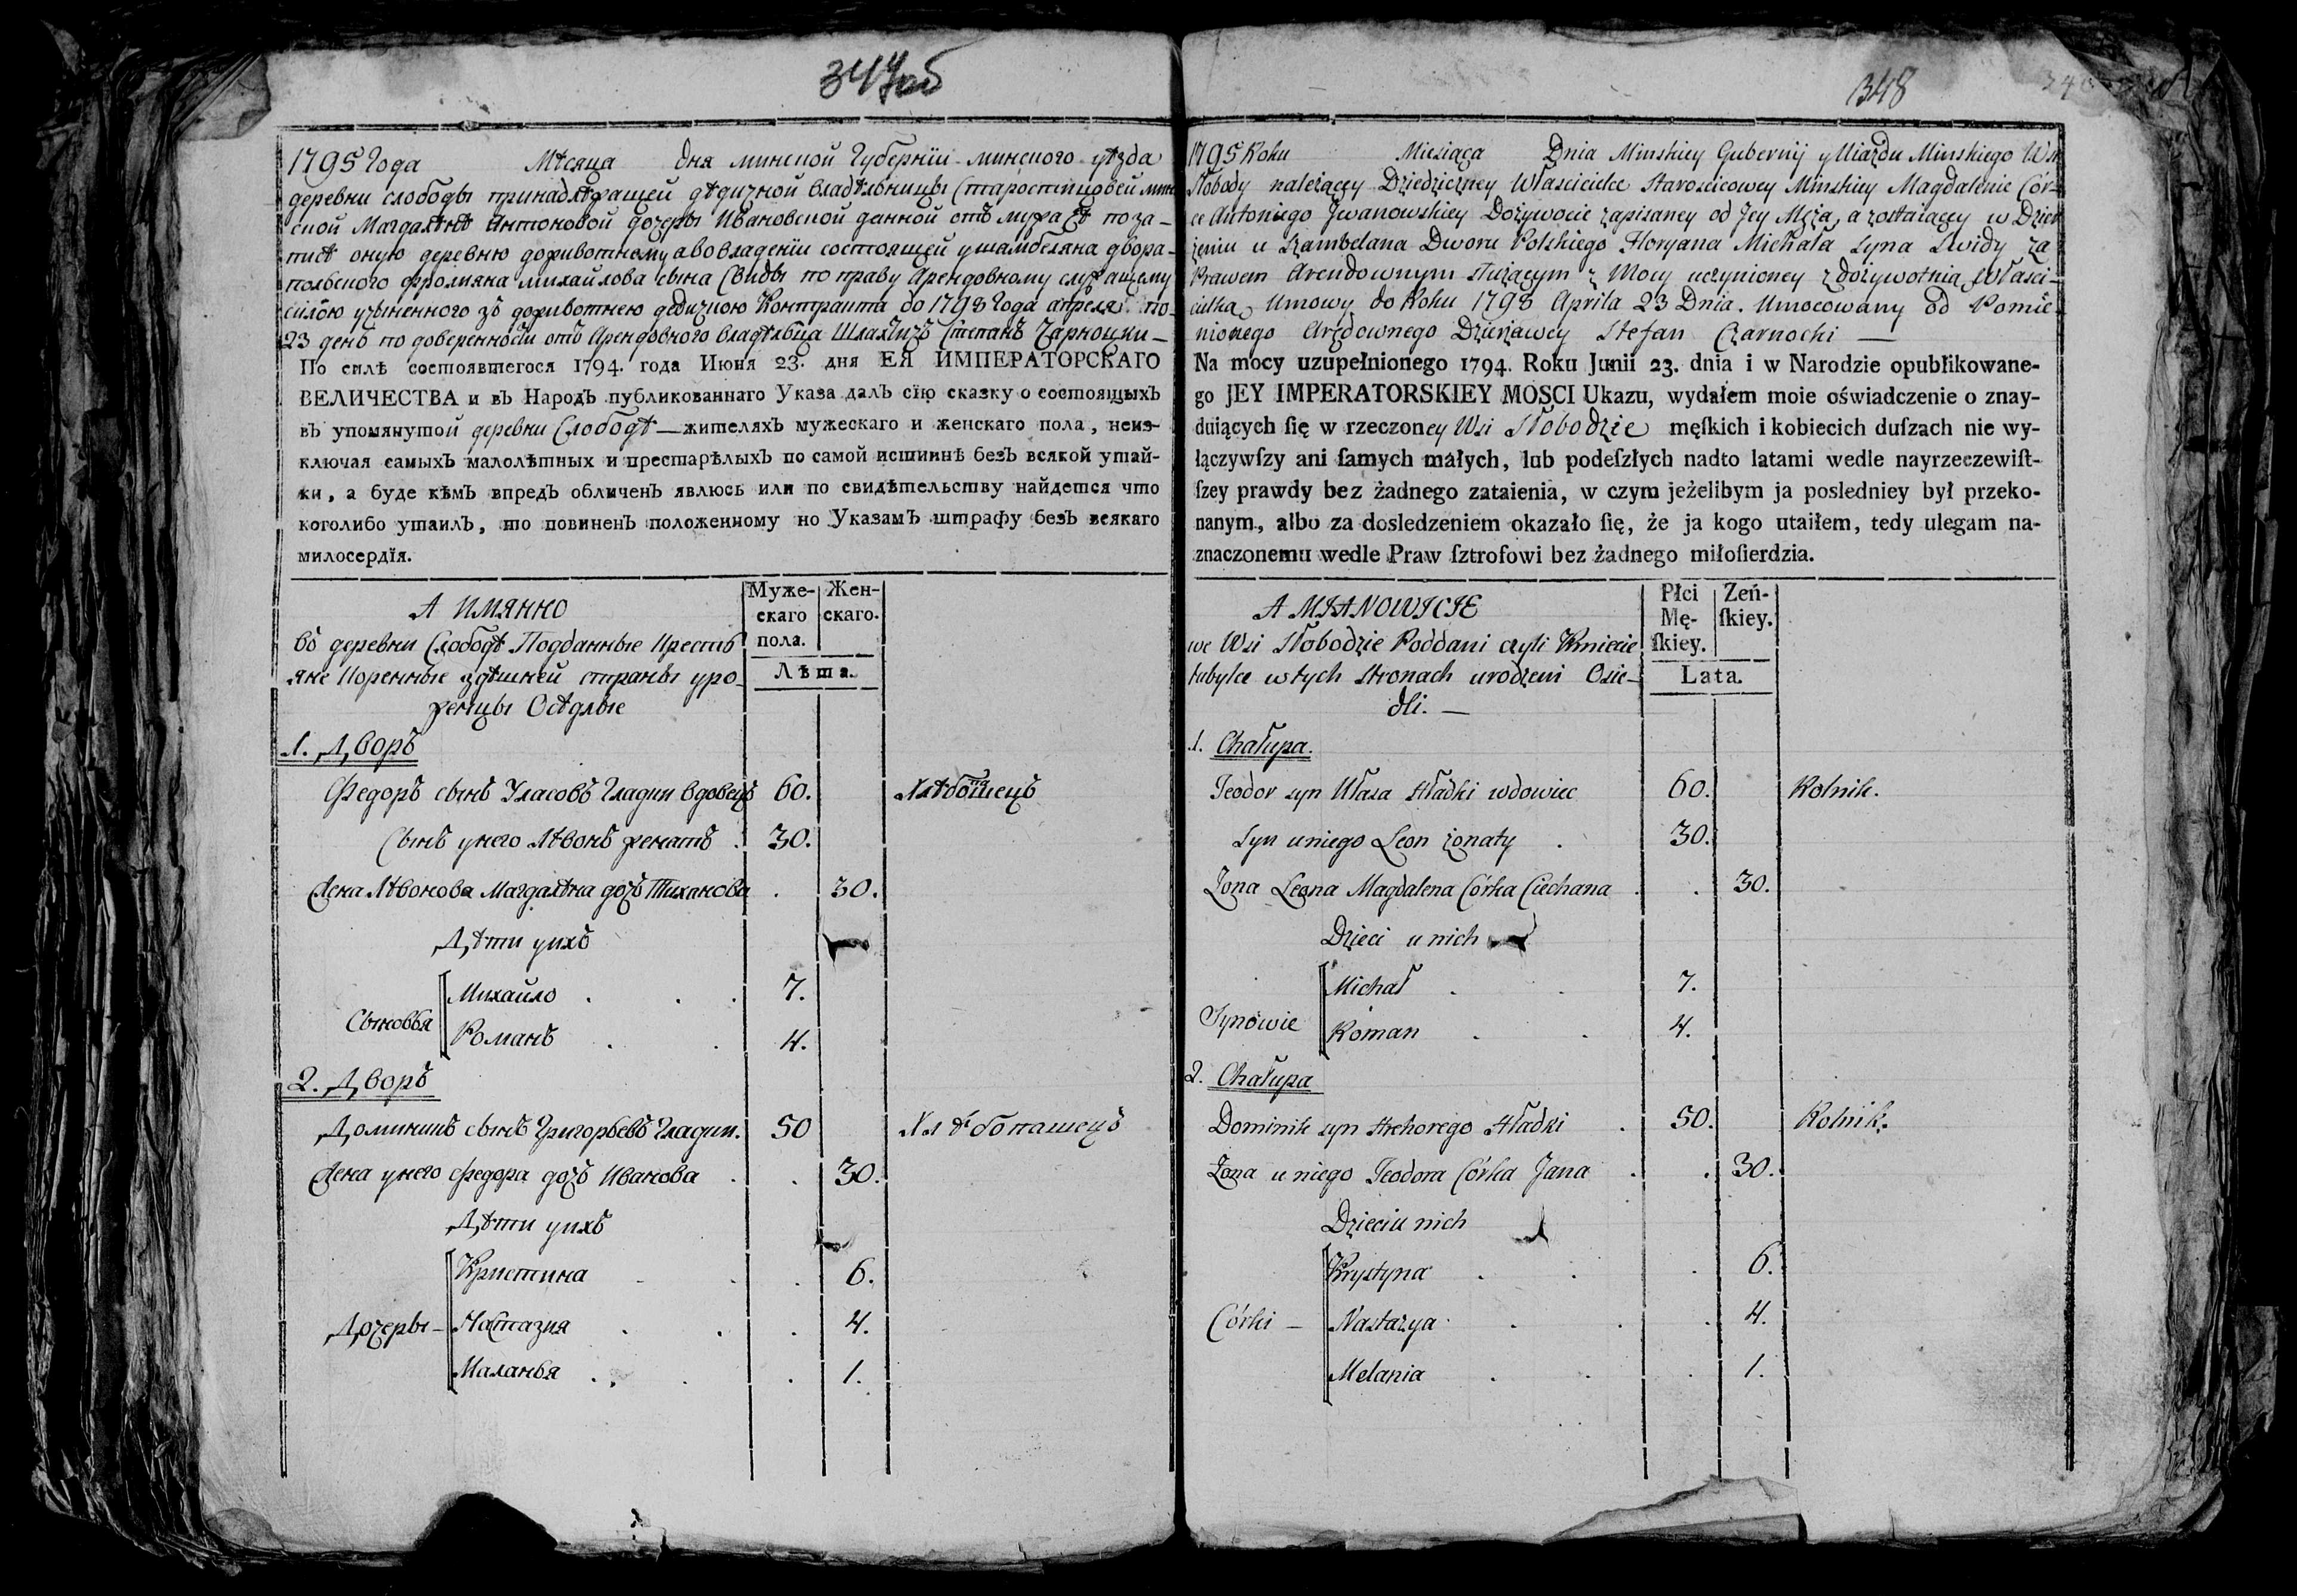 347об
1795 Года Мѣсяца дня минской Губернїи минского уѣзда
деревни слободы принадлѣжащей дѣдичной владѣльницы Старостицовей мин
ской Магдалѣнѣ Антоновой дочеры Ивановской данной отъ мужа Ея по за-
писѣ оную деревню доживотному а во владенїи состоящей у шамбеляна двора
польского Флоряна михайлова сына Свиды по праву Арендовному служащему
силою учыненного зъ доживотнею дедичною Контракта до 1798 Года апреля по
23 день по доверенности отъ Арендовного владѣльца Шляхтичъ Степанъ Чарноцки-
По силѣ состоявшегося 1794. года Июня 23. дня ЕЯ ИМПЕРАТОРСКАГО
ВЕЛИЧЕСТВА и въ Народъ публикованнаго Указа далъ сїю сказку о состоящыхъ
въ упомянутой деревни Слободѣ — жителяхъ мужескаго и женскаго пола, неиз-
ключая самыхъ малолѣтныхъ и престарѣлыхъ по самой истиннѣ безъ всякой утай-
ки, а буде кѣмъ впредъ обличенъ явлюсь или по свидѣтельству найдется что
коголибо утаилъ, то повиненъ положенному по Указамъ штрафу безъ всякаго
милосердїя.
А ИМЯННО
въ деревни Слободѣ Подданные Кресть
яне Коренные здѣшней страны уро-
женцы Осѣдлые
Муже-
скаго
пола.
Жен-
скаго.
Лѣта.
1. Дворъ
Федоръ сынъ Уласовъ Гладки вдовецъ 60. Хлѣбопашецъ
Сынъ унего Лѣвонъ женатъ . 30.
Жена Лѣвонова Магдалѣна дочъ Тиханова . 30.
Дѣти унхъ
Сыновья
Михайло . . . 7.
Романъ . . 4.
2. Дворъ
Доминикъ сынъ Григорьевъ Гладки. 50 Хлѣбопашецъ
Жена унего Федора дочъ Иванова . . 30.
Дѣти унхъ
Кристина . . . 6.
Дочеры — Настазия . . . 4.
Маланья . . . 1.
348
1795 Roku Miesiąca Dnia Minskiey Gubernij y Uiazdu Minskiego Wsi
Słobody należącey Dziedziczney Własciciełce Staroscicowey Minskiey Magdalenie Cór-
ce Antoniego Jwanowskiey Dożywocie zapisaney od Jey Męża, a zostaiącey w Dzier
żeniu u Szambelana Dworu Polskiego Floryana Michała syna Swidy za
Prawem Arendownym służącym z Mocy uczynioney z dożywotnią Własci-
cielką Umowy do Roku 1798 Aprila 23 Dnia. Umocowany od Pomie-
nionego Arędownego Dzierżawcy Stefan Czarnocki —
Na mocy uzupełnionego 1794. Roku Junii 23. dnia i w Narodzie opublikowane-
go JEY IMPERATORSKIEY MOSCI Ukazu, wydałem moie oświadczenie o znay-
duiących ſię w rzeczoney Wsi Słobodzie męſkich i kobiecich duſzach nie wy-
łączywſzy ani ſamych małych, lub podeſzłych nadto latami wedle nayrzeczewiſt-
ſzey prawdy bez żadnego zataienia, w czym jeżelibym ja posledniey był przeko-
nanym, albo za dosledzeniem okazało ſię, że ja kogo utaiłem, tedy ulegam na-
znaczonemu wedle Praw ſztrofowi bez żadnego miłoſierdzia.
A MIANOWICIE
we Wsi Słobodzie Poddani czyli Kmiecie
tubylce w tych stronach urodzeni Osie-
dli. —
Płci
Mę-
ſkiey.
Zeń-
ſkiey.
Lata.
1. Chałupa.
Teodor syn Ułasa Hładki wdowiec 60. Rolnik.
Syn uniego Leon żonaty . 30.
Żona Leona Magdalena Córka Ciechana . . 30.
Dzieci u nich
Synowie
Michał . . 7.
Roman . . 4.
2. Chałupa
Dominik syn Hrehorego Hładki . 50. Rolnik.
Żona u niego Teodora Córka Jana . . 30.
Dzieci u nich
Krystyna . . . 6.
Córki — Nastazya . . . 4.
Melania . . . 1.